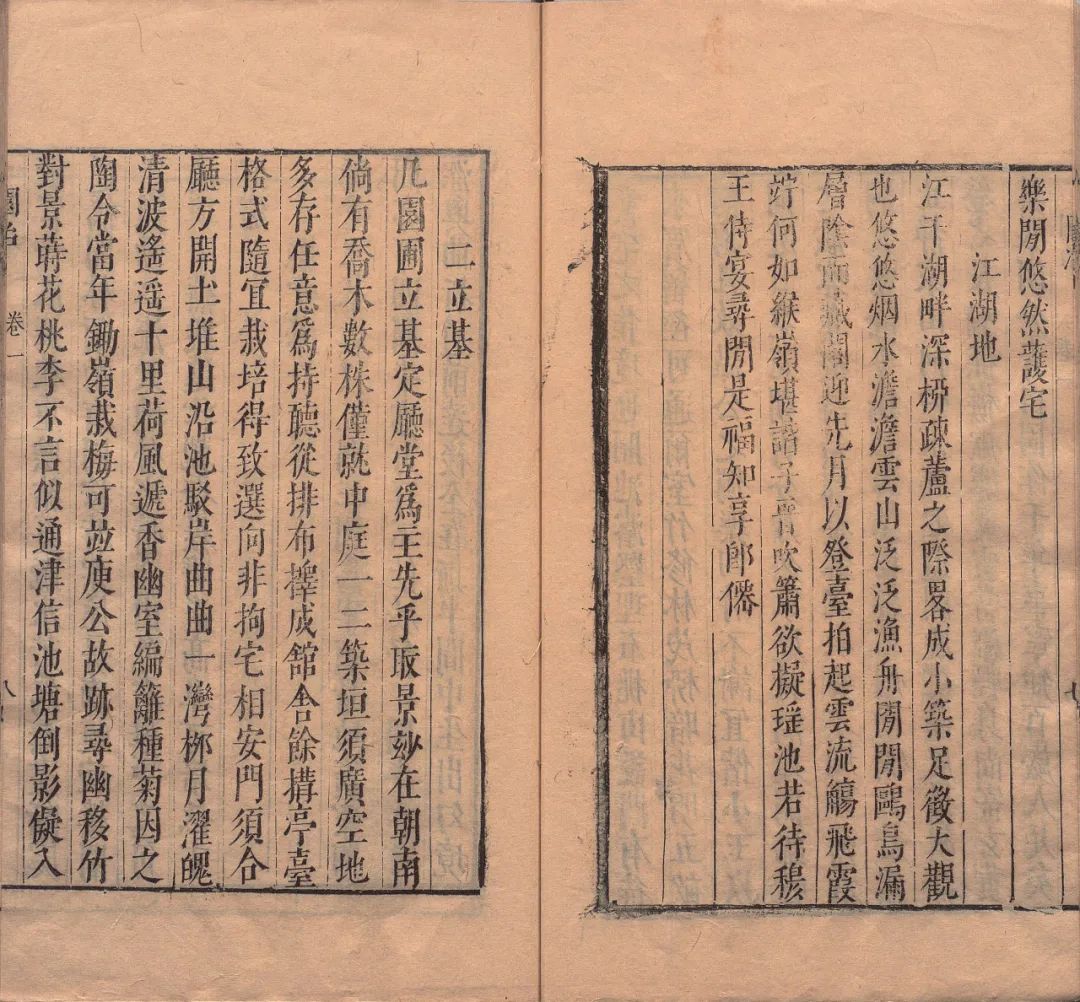 樂閒悠然䕶宅
江湖地
江干湖畔深柳疎蘆之際畧成小築足徵大觀
也悠悠烟水澹澹雲山泛泛漁舟閒閒鷗鳥漏
層陰而藏閣迎先月以登臺拍起雲流觴飛霞
竚何如緱嶺堪諧子晉吹簫欲擬瑤池若待穆
王侍宴尋閒是福知享卽僊
二立基
凢園圃立基定廳堂爲主先乎取景妙在朝南
倘有喬木數株僅就中庭一二築垣須廣空地
多存任意爲持聽從排布擇成舘舍餘搆亭臺
格式隨宜栽培得致選向非拘宅相安門須合
廳方開土堆山沿池駁岸曲曲一灣柳月濯魄
清波遙遙十里荷風遞香幽室編籬種菊因之
陶令當年鋤嶺栽梅可並庾公故跡尋幽移竹
對景蒔花桃李不言似通津信池塘倒影儗入
園冶 卷一 八